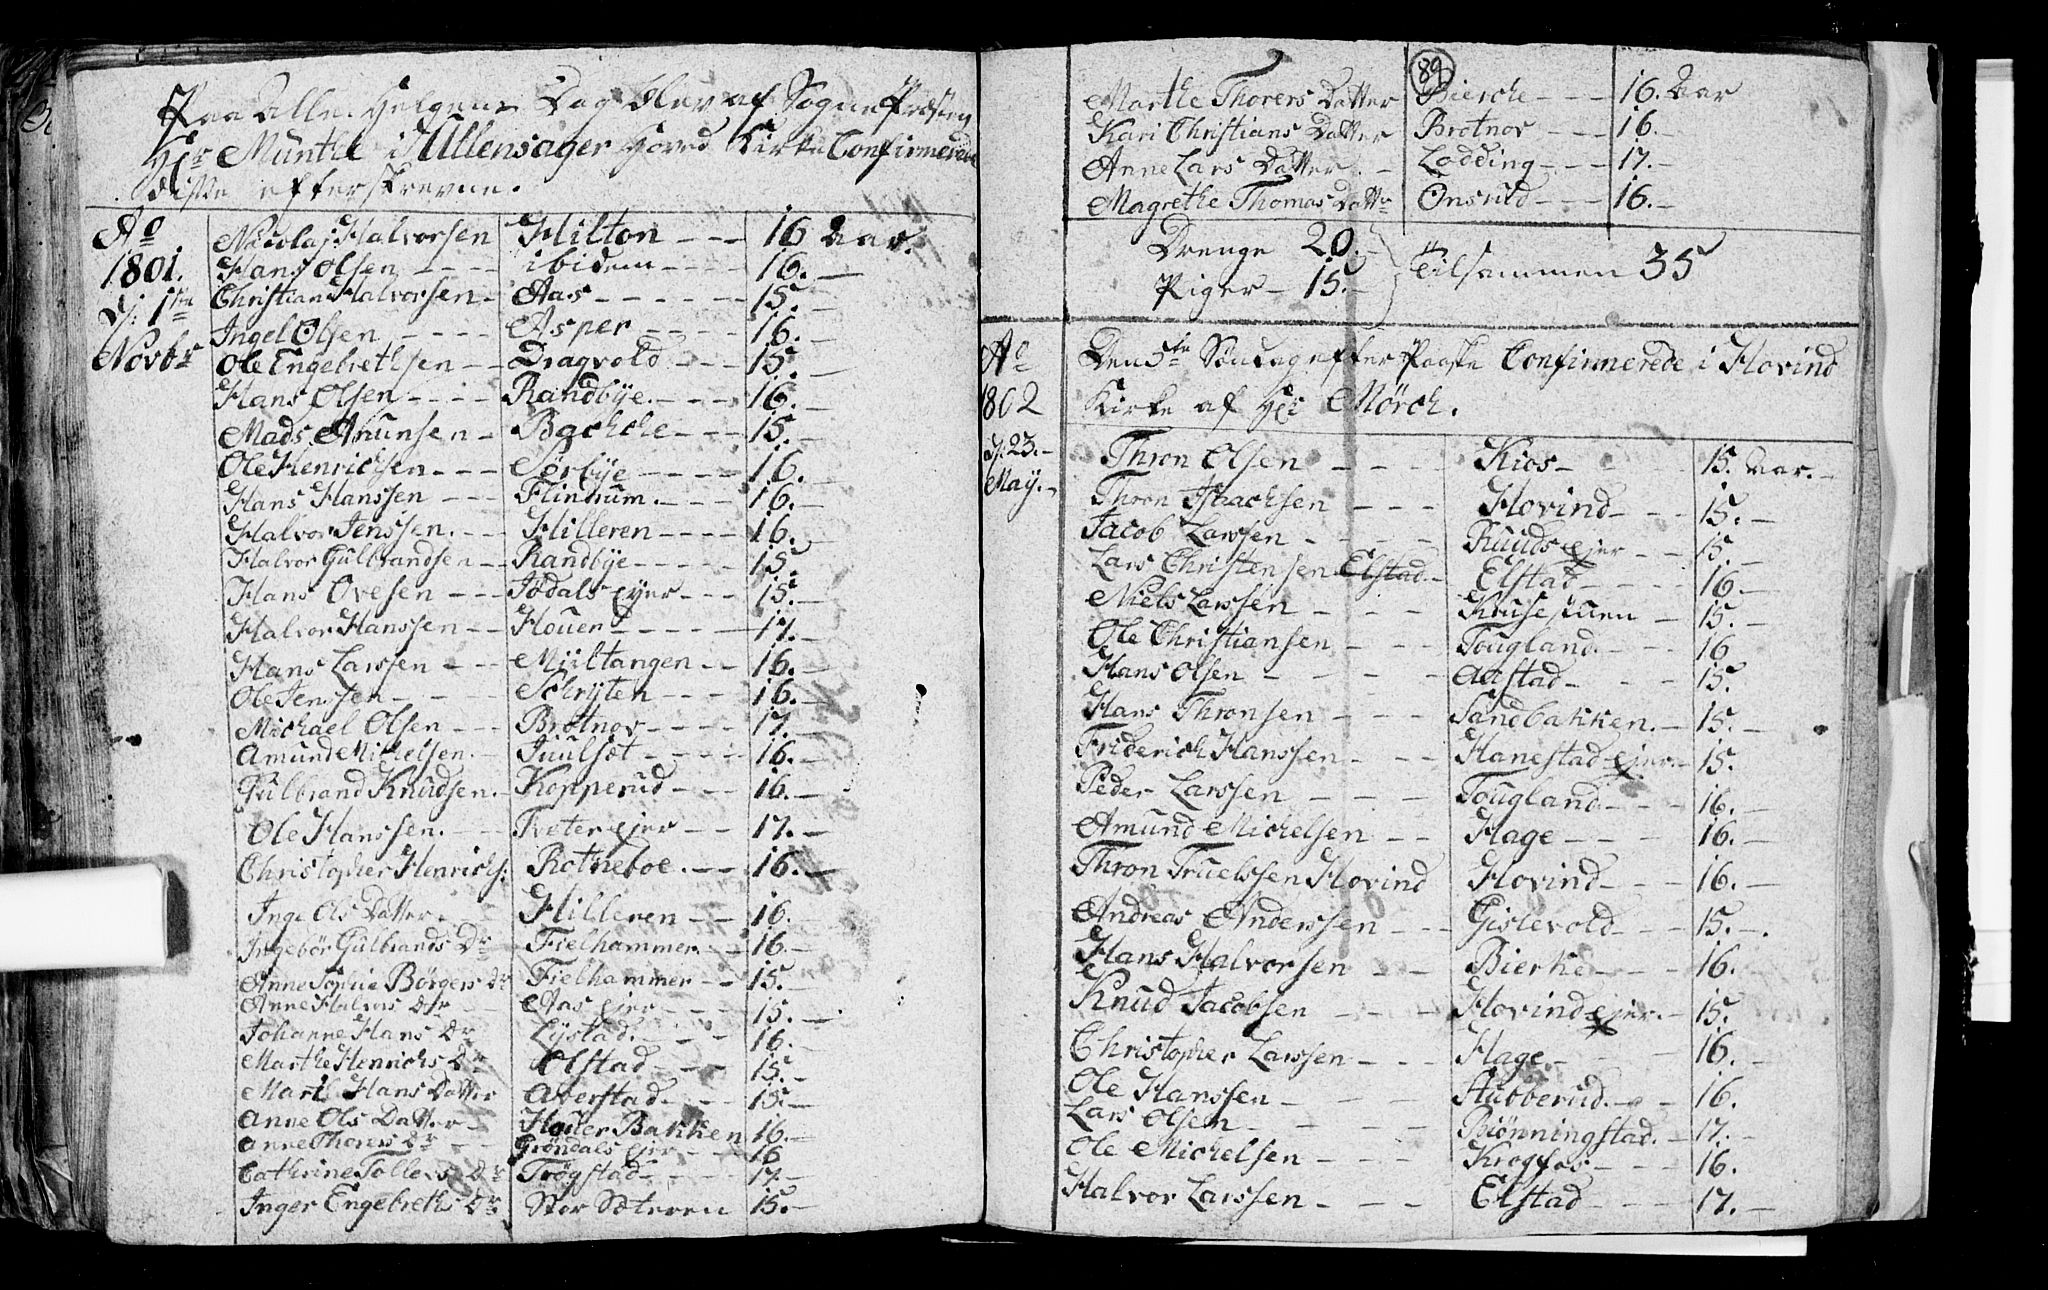 Paa Alle Helgens Dag blev af Sogne Præsten
Hr Munthe i Ullensager Hoved Kirke Confirmerede
disse efterskrevne.
Ao 1801. d: 1ste Novbr
Nicolaj Halvorsen Hilton - - - 16 Aar.
Hans Olsen - - - - ibidem - - - - 16. -
Christian Halvorsen - Aas - - - - - - 15. -
Ingel Olsen - - - - Asper - - - - 16. -
Ole Engebrethsen - - Dragvold - - - 15. -
Hans Olsen - - - - Randbÿe. - - - 16. -
Mads Amunsen - Bachche - - - 15. -
Ole Henrichsen - - - Sørbÿe - - - - 16. -
Hans Hanssen - - - Flindrum. - - - 16. -
Halvor Jenssen. - - - Hilleren - - - - 16. -
Halvor Gulbrandsen - - Randbÿe - - - - - 15. -
Hans Ovesen - - - Jødals eÿer - - - 15. -
Halvor Hanssen - - Houer - - - - - 17. -
Hans Larssen - - - Miiltangen - - 16. -
Ole Jenssen - - - - Schrÿten - - - 16. -
Michael Olsen - - - Brotnov - - - - 17. -
Amund Michelsen. - Juulsøt - - - - 16. -
Gulbrand Knudsen. - Kopperud - - - 16. -
Ole Hanssen. - - - Tveter ejer - - 17. -
Christopher Henrichs: Rotneboe. - - - 16. -
Inge Ols Datter. - - Hilleren - - 16. -
Ingebør Gulbrands Dr Fielhammer - - 16. -
Anne Sophie Børgers Dr Fielhammer - - 15. -
Anne Halvors Dr - - Aas ejer - - - 15. -
Johanne Hans Dr Lÿstad. - - - 16. -
Marthe Henrichs Dr Olstad - - - 15. -
Mart Hans Datter Averstad - - - 15. -
Anne Ols Datter - Houer Bakken 16. -
Anne Thorers Dr - - Grøndals ejer - - 16
Cathrine Tollefs Dr Trøgstad - - - 17. -
Inger Engebreths Dr Stor Sæteren 15. -
89
Marthe Thorers Datter Bierche - - - 16. Aar
Kari Christians Datter Brotnov - - - 16. -
Anne Lars Datter. - Lodding - - - 17. -
Magrethe Thomas Dattr Onsrud - - - 16. -
Drenge 20. -
Piger - 15. -
Tilsammen 35
Ao 1802 d: 23. - Maÿ. -
Den 5te Søndag efter Paaske Confirmerede i Hovind
Kirke af Hr Mørch.
Thron Olsen - - - Kios - - - 15. Aar. -
Thron Isaachsen - - - Hovind - - - 15. -
Jacob Larssen - - - - Ruuds ejer - - 15. -
Lars Christensen Elstad - Elstad - - - - 16. -
Niels Larssen - - - Kruse stuen - 15. -
Ole Christiansen - - - Tougland - - - 16
Hans Olsen - - - - - Alstad - - - - 15.
Hans Thronsen - - - Sandbakken. - 15. -
Friderich Hanssen - - - Hanestad ejer. - 15.
Peder Larssen - - - Tougland - - - 16. -
Amund Michelsen - - Hage - - - 16. -
Thron Truelssen Hovind Hovind - - - 16. -
Andreas Anderssen - - - Gislevold - - - 15. - .
Hans Halvorsen - - Bierke - - - 16. -
Knud Jacobsen - - - Hovind ejer. - 15.
Christopher Larssen - - - Hage - - - - 16. -
Ole Hanssen - - - - Hubberud. - - 16.
Lars Olsen - - - - Biønningstad. - 17. -
Ole Michelsen - - - Krogfos - - - 16.
Halvor Larssen - - - Elstad - - - 17. -